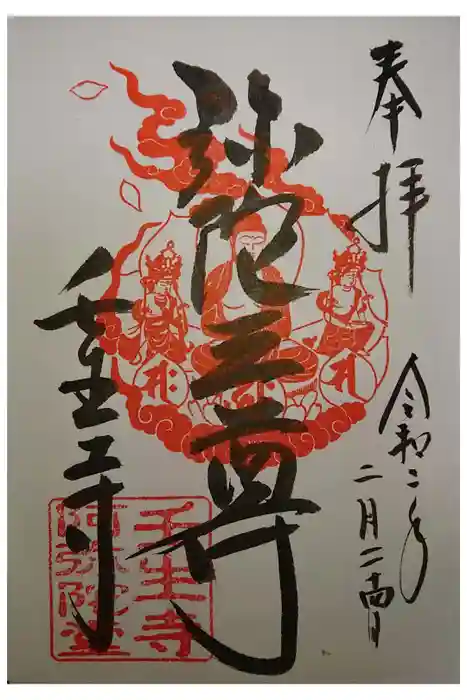 奉拝
令和二年
二月二十四日
弥陀三尊
壬生寺
壬生寺
阿弥陀堂